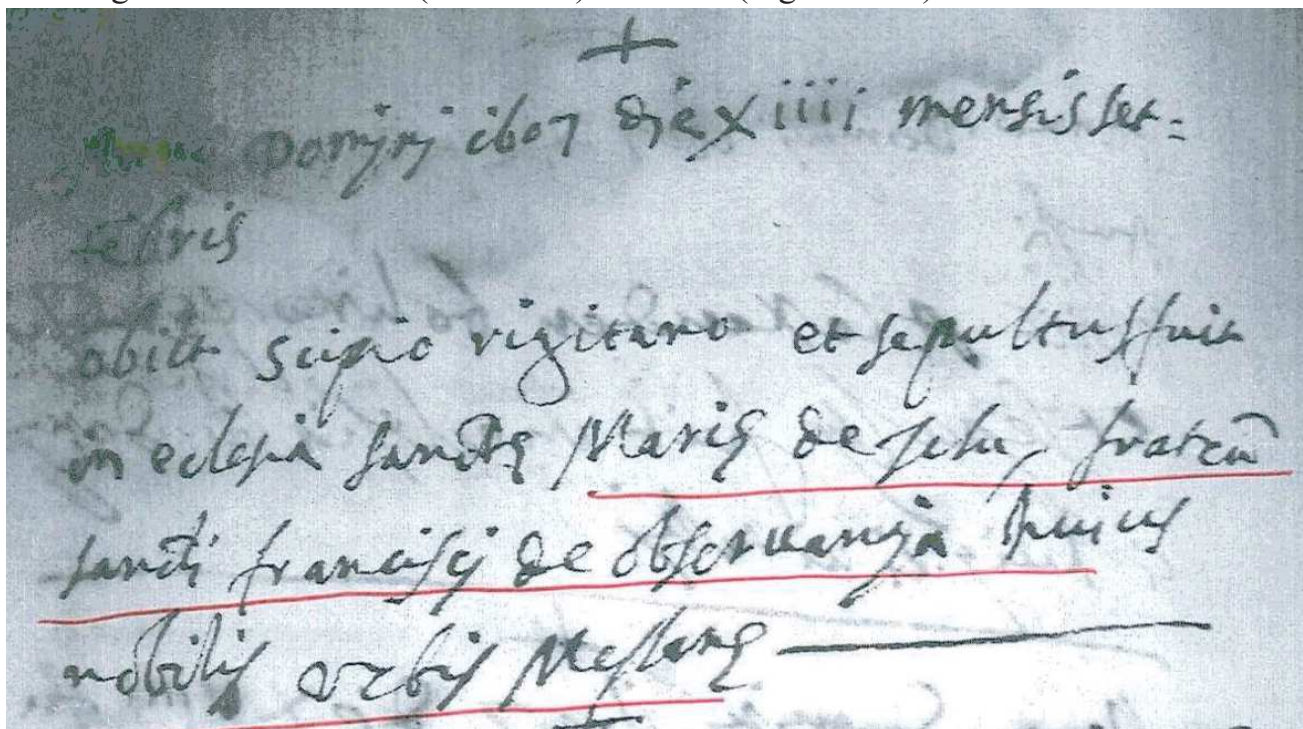 +
Domjnj 1607 dje xiiii mensis set=
tẽbris
obiit scipio vigitano et sepultus fuit
in eclesia sanctę Marię de jesu, fratrũ
sancti francisej de obseruanzia huius
nobilis vrbis Messanę